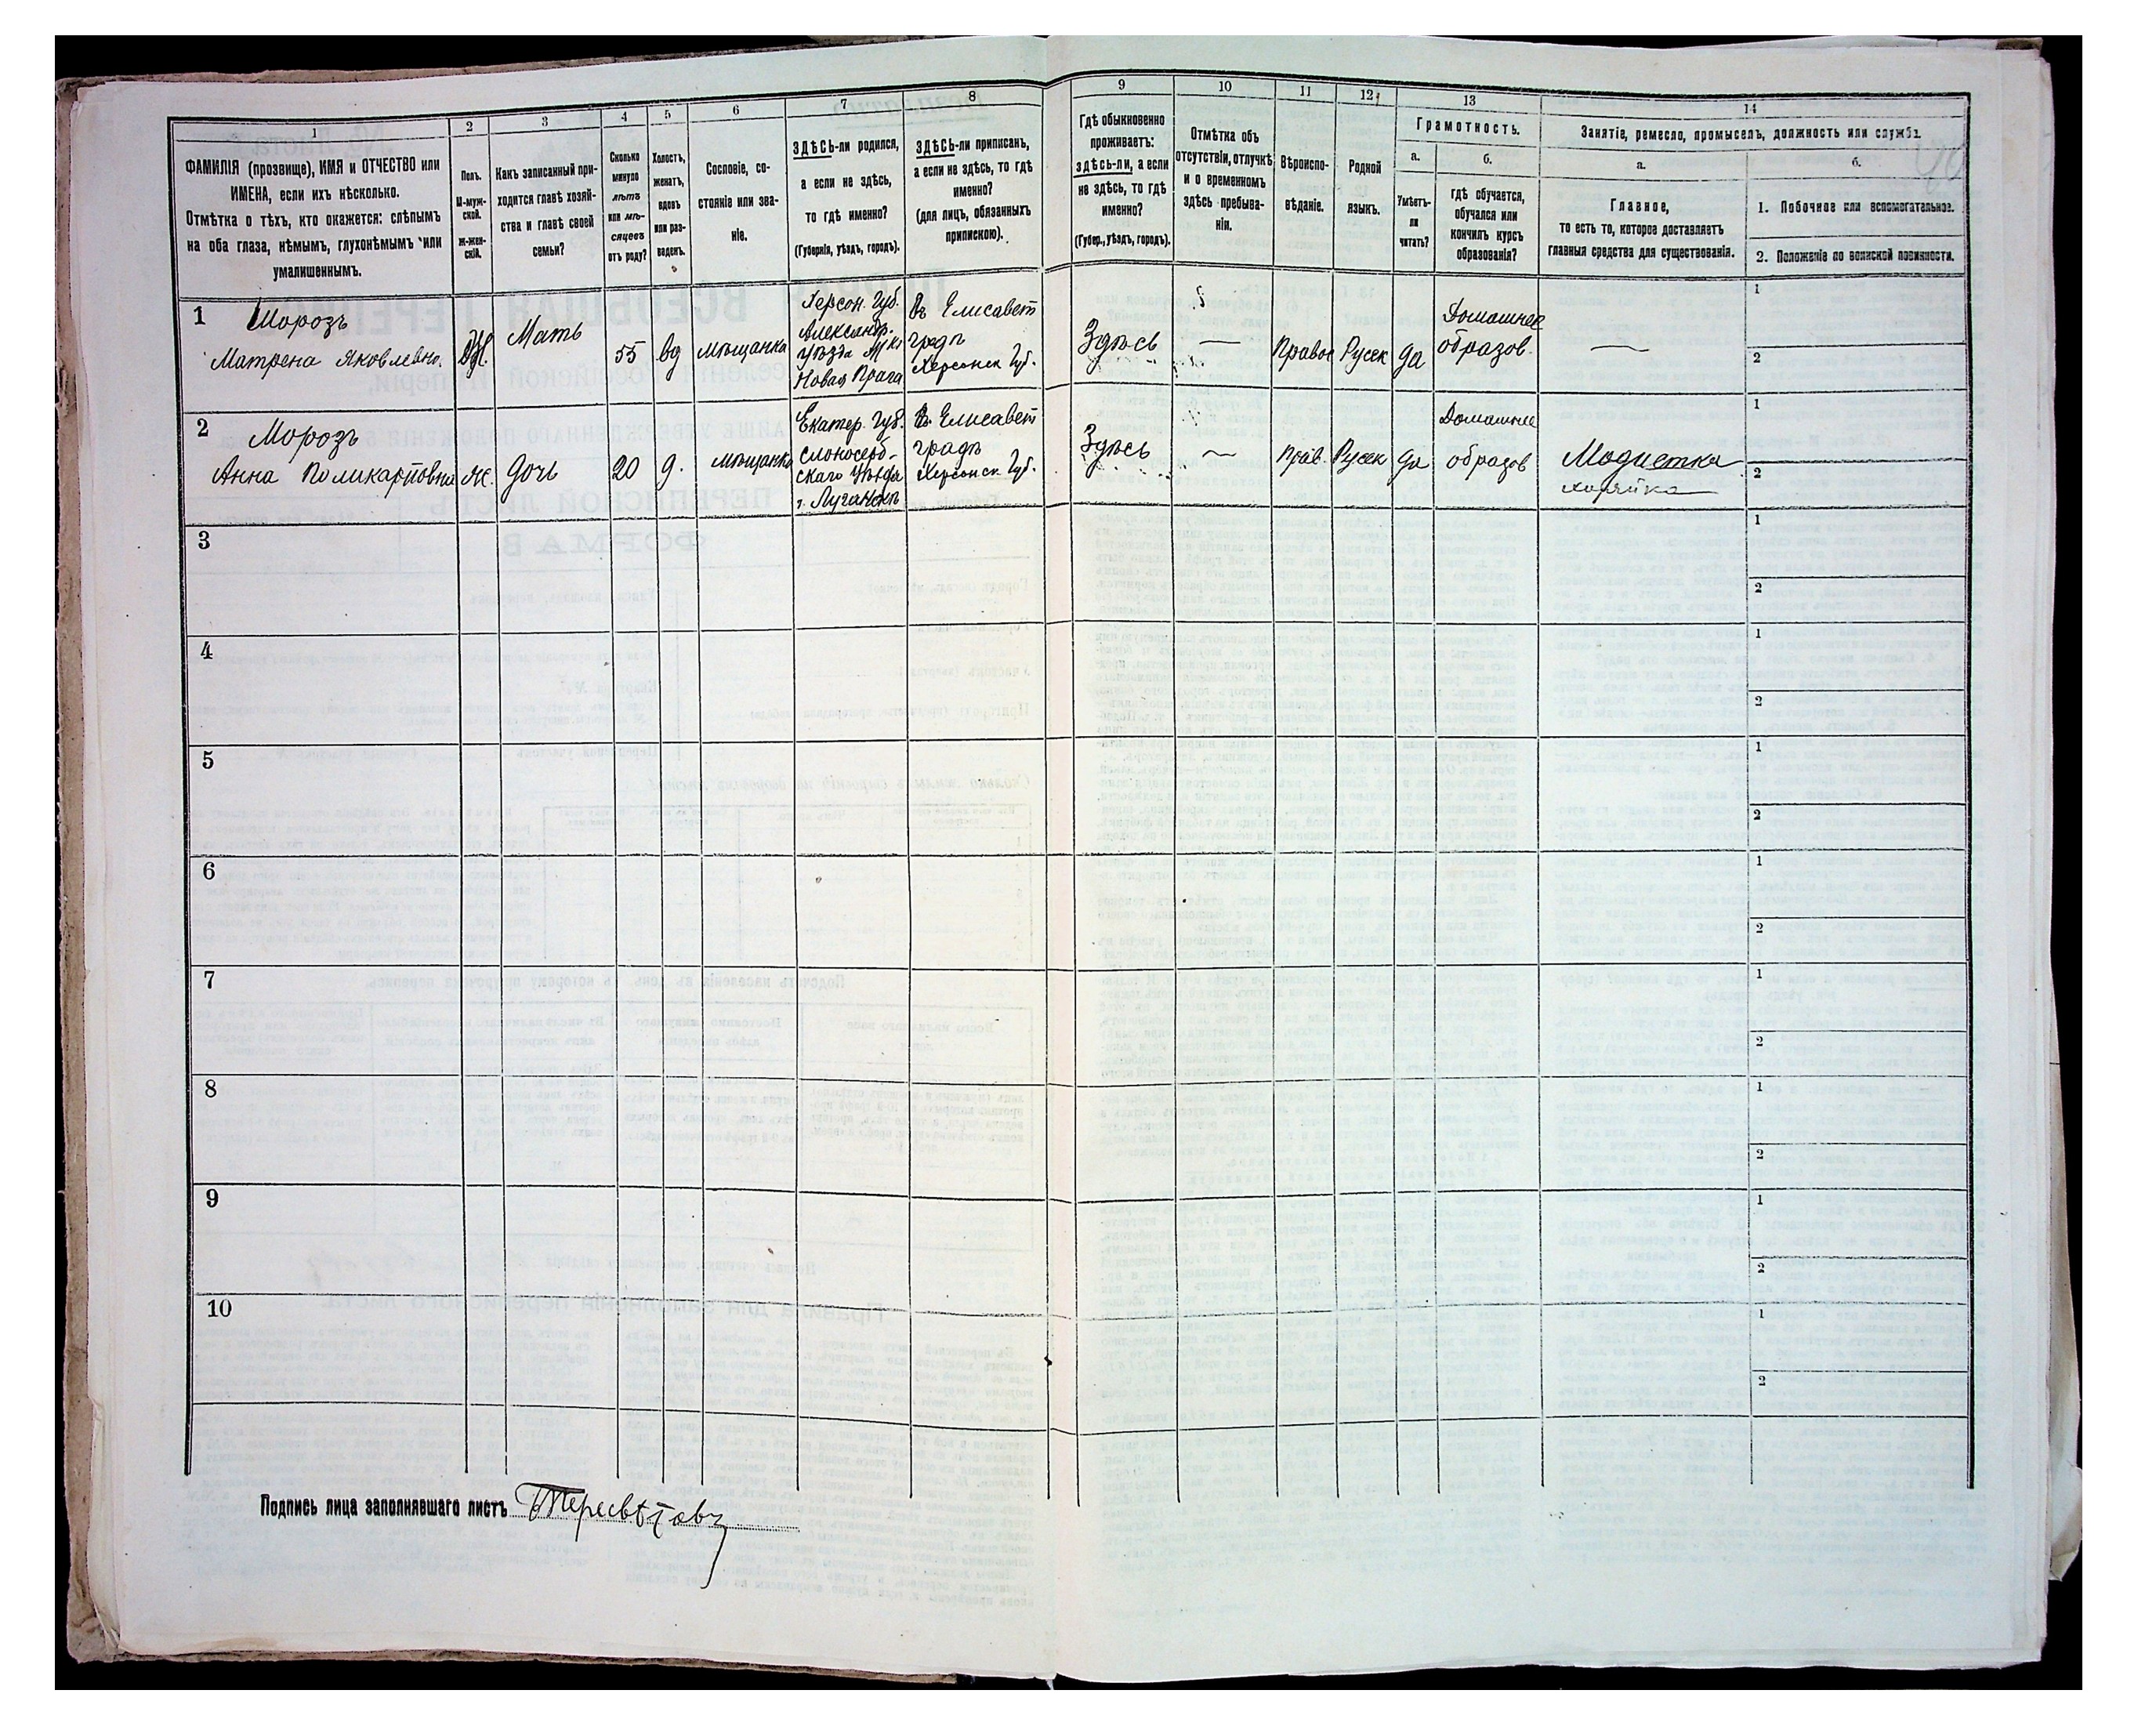 1 2 3 4 5 6 7 8 9 10 11 12 13 14
ФАМИЛІЯ (прозвище), ИМЯ и ОТЧЕСТВО или
ИМЕНА, если ихъ нѣсколько.
Отмѣтка о тѣхъ, кто окажется: слѣпымъ
на оба глаза, нѣмымъ, глухонѣмымъ или
умалишеннымъ.
Полъ.
М-муж-
ской.
Ж-жен-
скій.
Какъ записанный при-
ходится главѣ хозяй-
ства и главѣ своей
семьи?
Сколько
минуло
лѣтъ
или мѣ-
сяцевъ
отъ роду?
Холостъ,
женатъ,
вдовъ
или раз-
веденъ.
Сословіе, со-
стояніе или зва-
ніе.
ЗДѢСЬ-ли родился,
а если не здѣсь,
то гдѣ именно?
(Губернія, уѣздъ, городъ).
ЗДѢСЬ-ли приписанъ,
а если не здѣсь, то гдѣ
именно?
(для лицъ, обязанныхъ
припискою).
Гдѣ обыкновенно
проживаетъ:
здѣсь-ли, а если
не здѣсь, то гдѣ
именно?
(Губер., уѣздъ, городъ).
Отмѣтка объ
отсутствіи, отлучкѣ
и о временномъ
здѣсь пребыва-
ніи.
Вѣроиспо-
вѣданіе.
Родной
языкъ.
Грамотность.
а.
Умѣетъ-
ли
читать?
б.
гдѣ обучается,
обучался или
кончилъ курсъ
образованія?
Занятіе, ремесло, промыселъ, должность или служба.
а.
Главное,
то есть то, которое доставляетъ
главныя средства для существованія.
б.
1. Побочное или вспомогательное.
2. Положеніе по воинской повинности.
1
Морозъ
Матрена Яковлевна.
Ж.
Мать
55
вд
мѣщанка
Херсон. Губ.
Александр.
Уѣзда М
Новая Прага
Въ Елисавет
градѣ
Херсонск Губ.
Здѣсь
—
Правос
Русск
да
Домашнее
образов.
—
1
2
2
Морозъ
Анна Поликарповна
Ж.
дочь
20
д.
мѣщанка
Екатер. Губ.
Слоносерб-
скаго Уѣзда
г. Луганскъ
Въ Елисавет
градѣ
Херсонск Губ.
Здѣсь
—
Прав.
Русск
да
Домашнее
образов
Модистка
хозяйка
1
2
3
1
2
4
1
2
5
1
2
6
1
2
7
1
2
8
1
2
9
1
2
10
1
2
Подпись лица заполнявшаго листъ